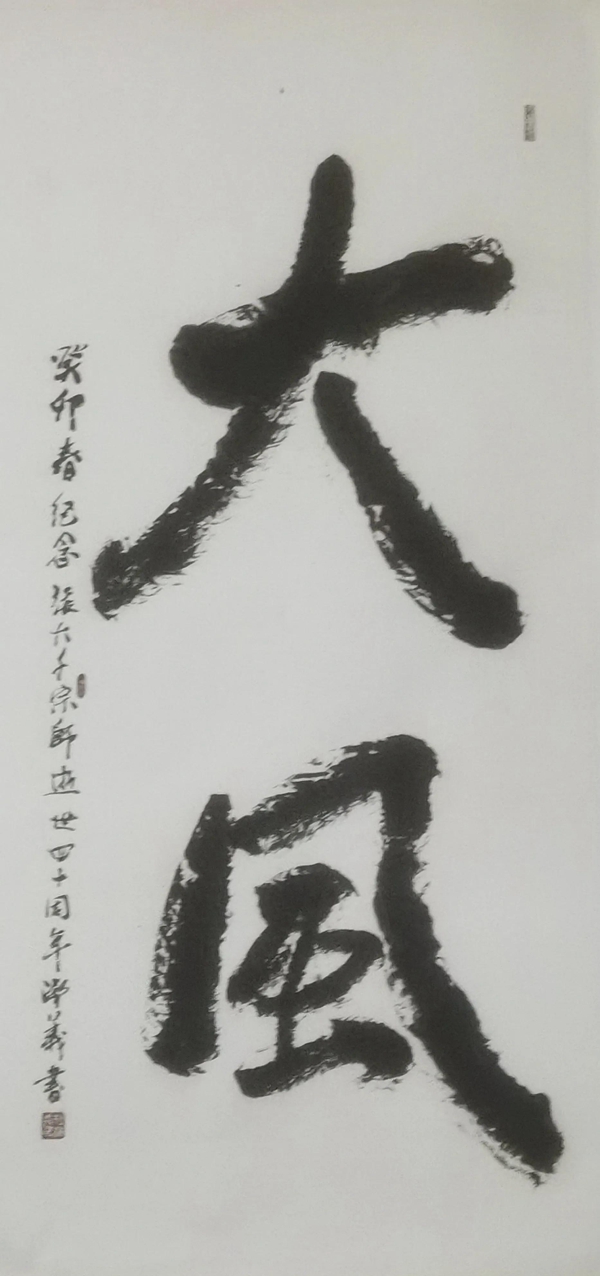 大風
癸卯春紀念張大千宗師逝世四十周年 義書